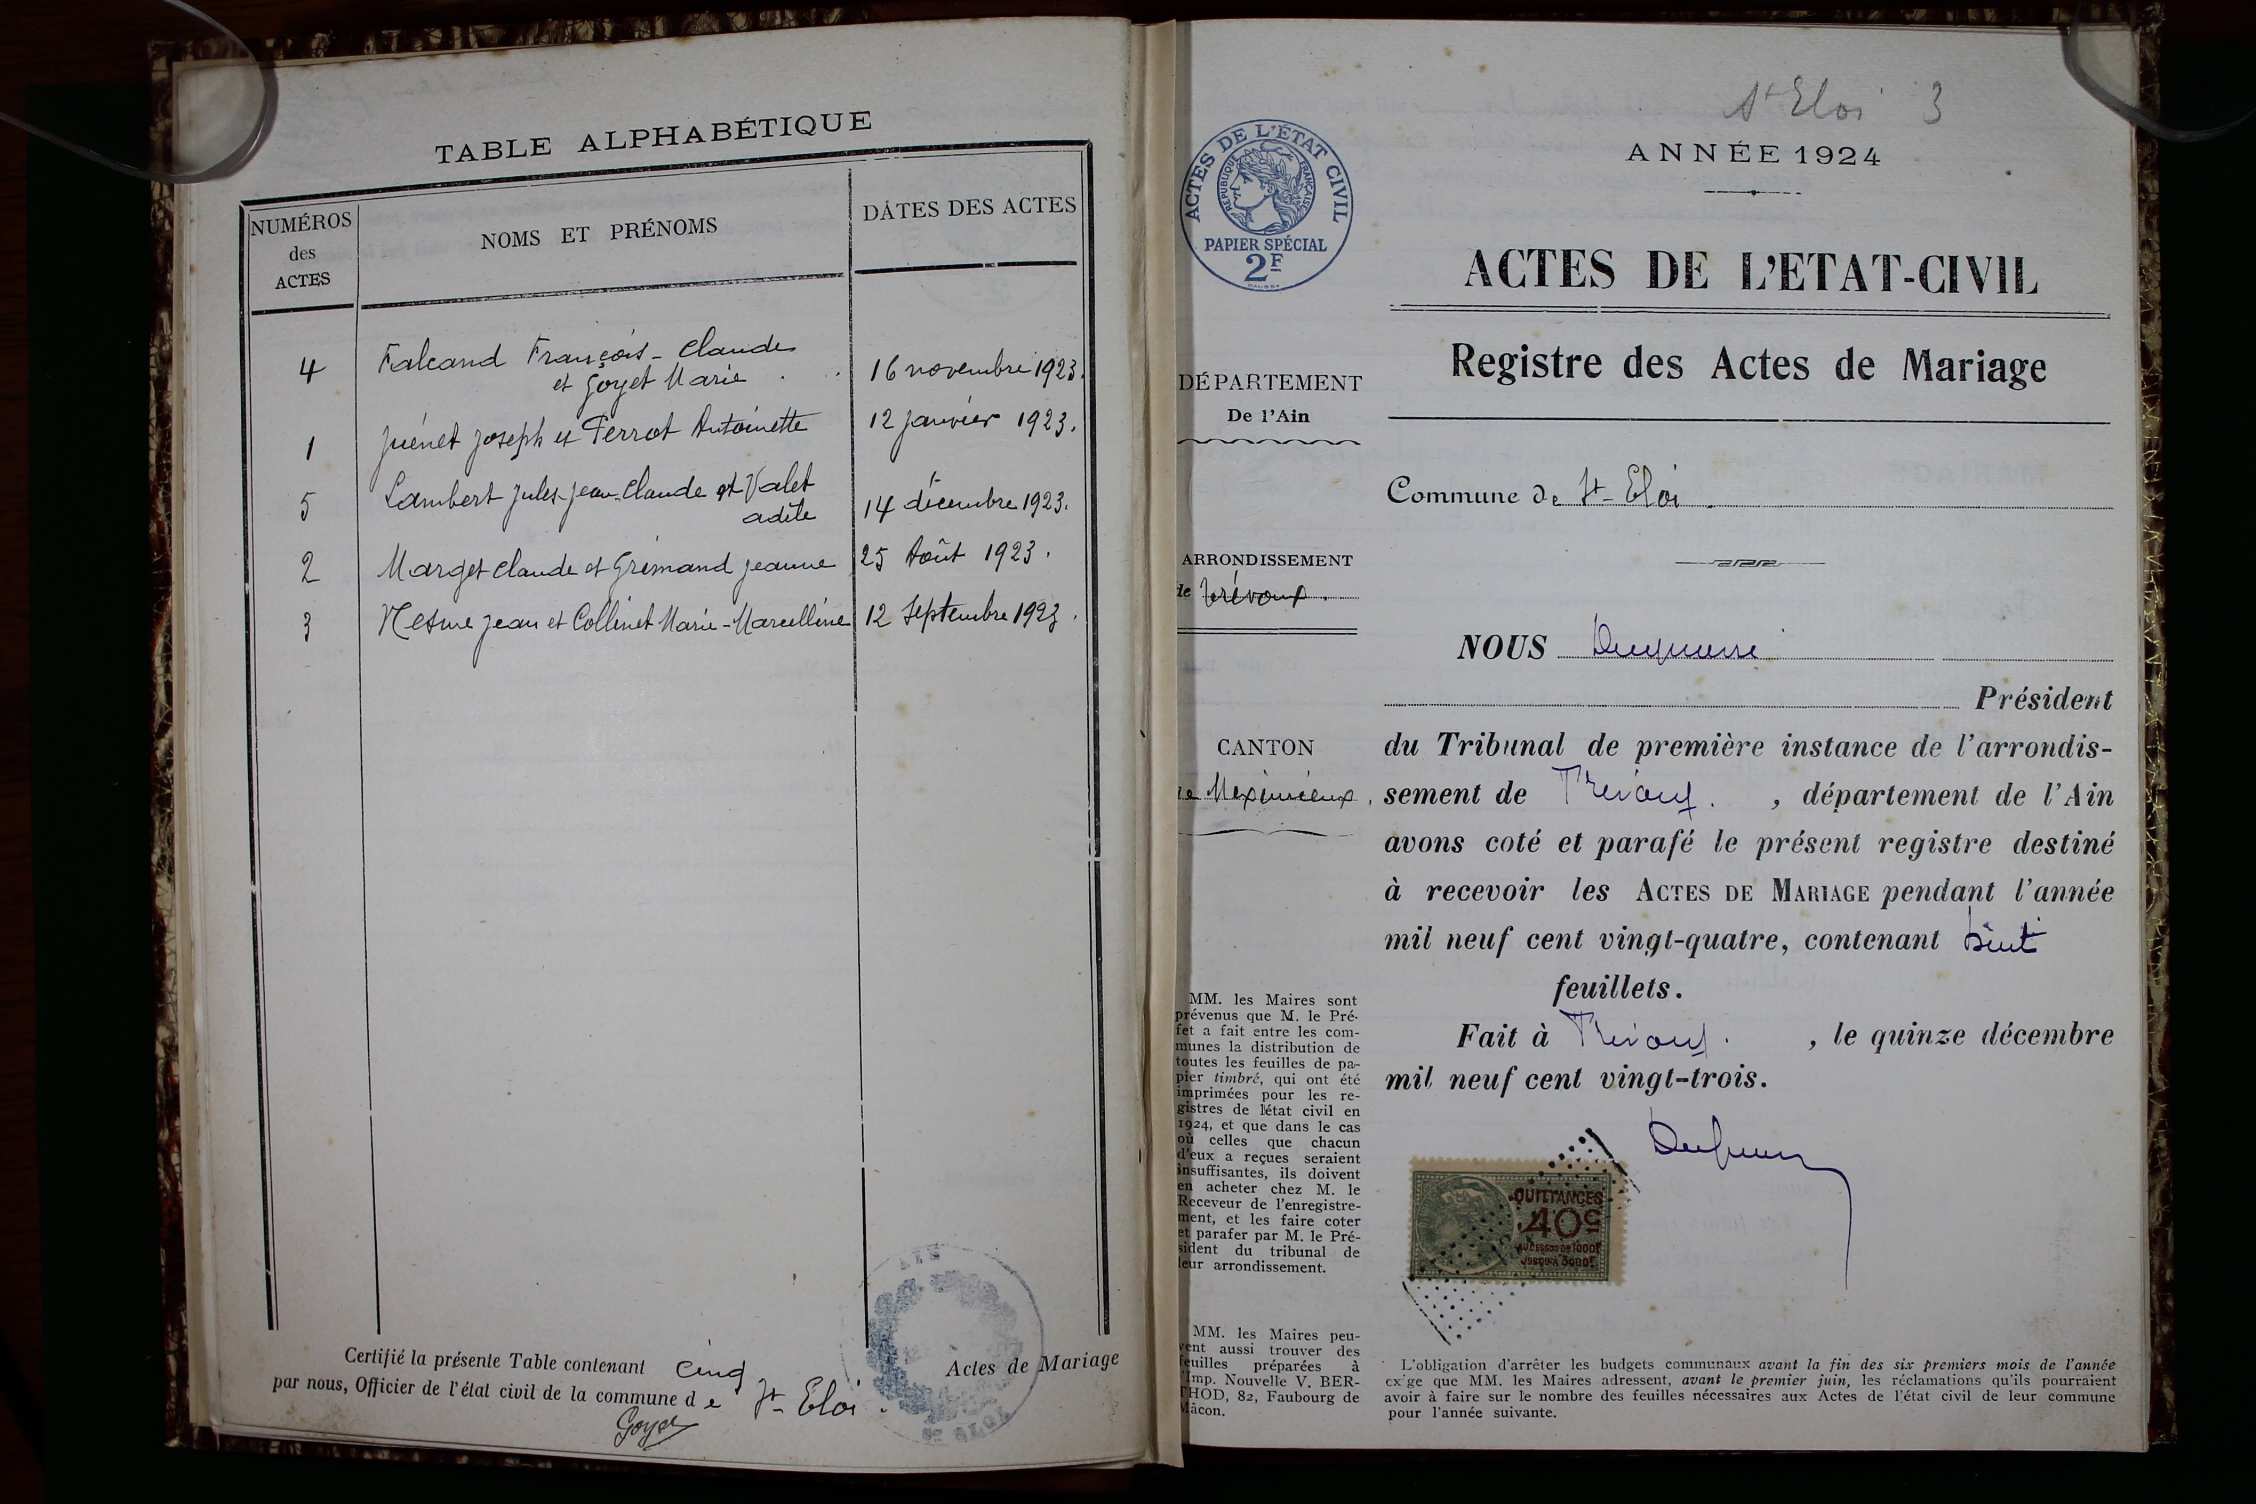 TABLE ALPHABÉTIQUE
NUMÉROS
des
ACTES
NOMS ET PRÉNOMS
DATES DES ACTES
4 Falcand François-Claude
et Goyet Marie 16 novembre 1923.
1 Juénet Joseph et Perrot Antoinette 12 janvier 1923.
5 Lambert Jules-Jean-Claude et Valet
adèle 14 décembre 1923.
2 Marget Claude et Grimand Jeanne 25 Août 1923.
3 Nesme Jean et Collinet Marie-Marcelline 12 Septembre 1923.
Certifié la présente Table contenant cinq Actes de Mariage
par nous, Officier de l'état civil de la commune de St-Eloi.
Goyet
AIN
St ELOI
St Eloi 3
ANNÉE 1924
ACTES DE L'ÉTAT CIVIL
RÉPUBLIQUE FRANÇAISE
PAPIER SPÉCIAL
2F
ACTES DE L'ETAT-CIVIL
Registre des Actes de Mariage
DÉPARTEMENT
De l'Ain
Commune de St-Eloi.
ARRONDISSEMENT
de Trévoux.
NOUS
Président
CANTON
de Meximieux.
du Tribunal de première instance de l'arrondis-
sement de Trévoux. , département de l'Ain
avons coté et parafé le présent registre destiné
à recevoir les ACTES DE MARIAGE pendant l'année
mil neuf cent vingt-quatre, contenant huit
feuillets.
Fait à Trévoux. , le quinze décembre
mil neuf cent vingt-trois.
QUITTANCES
40c
AU DESSUS DE 1000F
JUSQU'A 3000F
MM. les Maires sont
prévenus que M. le Pré-
fet a fait entre les com-
munes la distribution de
toutes les feuilles de pa-
pier timbré, qui ont été
imprimées pour les re-
gistres de l'état civil en
1924, et que dans le cas
où celles que chacun
d'eux a reçues seraient
insuffisantes, ils doivent
en acheter chez M. le
Receveur de l'enregistre-
ment, et les faire coter
et parafer par M. le Pré-
sident du tribunal de
leur arrondissement.
MM. les Maires peu-
vent aussi trouver des
feuilles préparées à
l'Imp. Nouvelle V. BER-
THOD, 82, Faubourg de
Mâcon.
L'obligation d'arrêter les budgets communaux avant la fin des six premiers mois de l'année
exige que MM. les Maires adressent, avant le premier juin, les réclamations qu'ils pourraient
avoir à faire sur le nombre des feuilles nécessaires aux Actes de l'état civil de leur commune
pour l'année suivante.